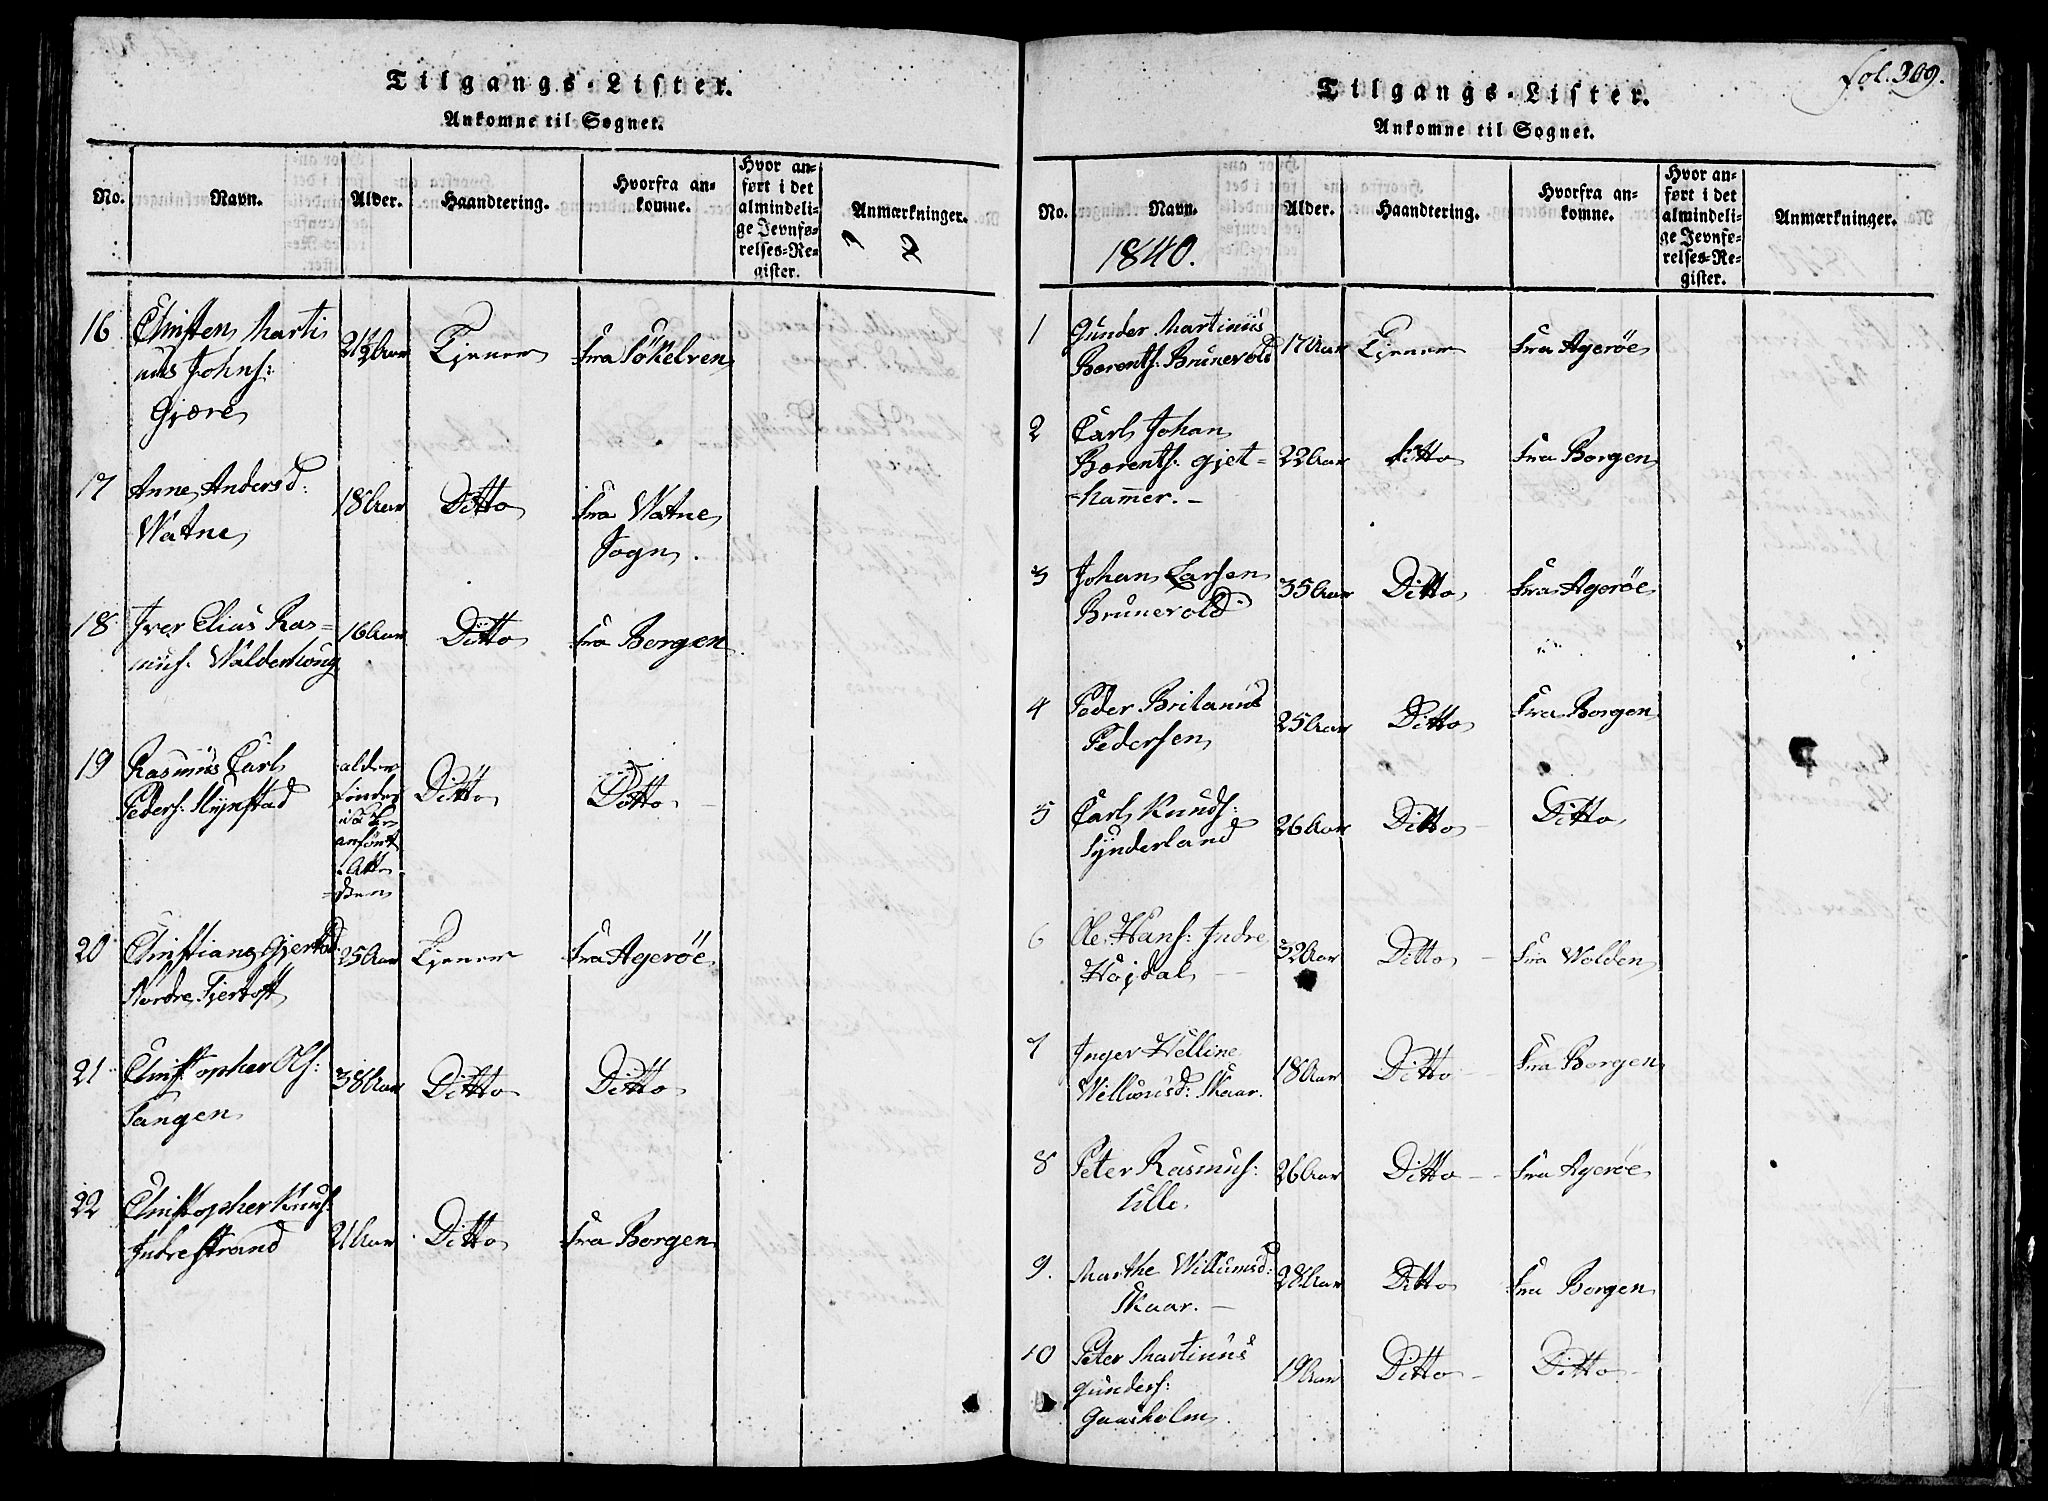 Tilgangs-Lister.
Ankomne til Sognet.
No.
Navn.
Alder.
Haandtering.
Hvorfra an-
komne.
Hvor an-
ført i det
almindeli-
ge Jevnfø-
relses-Re-
gister.
Anmærkninger.
16
Christen Marti
nus Johns:
Gjære
21½ Aar
Tjener
fra Sökelven
17
Anne Andersd:
Watne
18 Aar
Ditto
fra Watne
Sogn.
18
Iver Elias Ras-
mus. Walderhoug
16 Aar
Ditto
fra Borgen
19
Rasmus Carl
Peders: Slynstad
alder
Ditto
Ditto
20
Christiane Gjertsd
Nordre Fjertoft
25 Aar
Tjener
fra Agerøe
21
Christopher Ols:
Tangen
38 Aar
Ditto
Ditto
22
Christopher Knus:
Indrestrand
21 Aar
Ditto
fra Borgen
fol. 309.
Tilgangs-Lister.
Ankomne til Sognet.
No.
Navn.
Alder.
Haandtering.
Hvorfra an-
komne.
Hvor an-
ført i det
almindeli-
ge Jevnfø-
relses-Re-
gister.
Anmærkninger.
1840.
1
Gunder Martinus
Bærents: Brunevold
17 Aar
Tjener
fra Agerøe
2
Carl Johan
Bærents: Gjet-
-hamer.-
22 Aar
ditto
fra Borgen
3
Johan Larsen
Brunevold
35 Aar
Ditto
fra Agerøe
4
Peder Britanus
Pedersen
25 Aar
Ditto
fra Borgen
5
Carl Knuds:
Synderland
26 Aar
Ditto
Ditto
6
Ole Hans: Indre
Højdal
32 Aar
Ditto
fra Wolden
7
Inger Helline
Willumsd: Skaar.
18 Aar
Ditto
fra Borgen
8
Peter Rasmus:
Lille
26 Aar
Ditto
fra Agerøe
9.
Marthe Willumsd:
Skaar.
28 Aar
Ditto
fra Borgen
10
Peter Martinus
Gunders:
Gaasholm
19 Aar
Ditto
Ditto